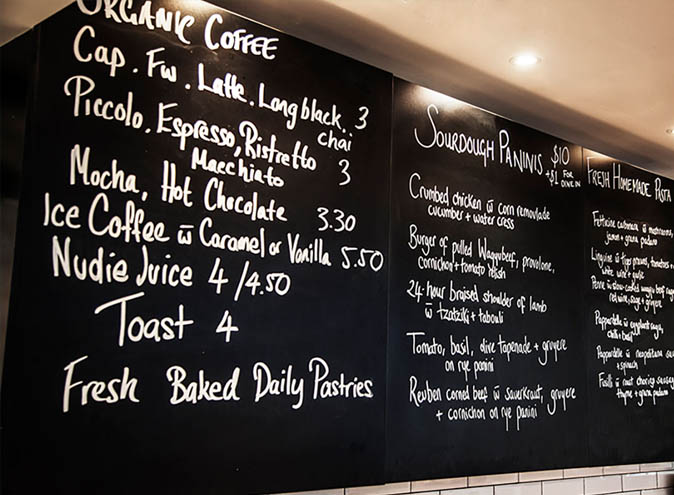 ORGANIC COFFEE
Cap. Fw. Latte. Long black.. 3
chai
Piccolo. Espresso, Ristretto 3
Macchiato
Mocha, Hot Chocolate 3.30
Ice Coffee w̄ Caramel or Vanilla 5.50
Nudie Juice 4/4.50
Toast 4
Fresh Baked Daily Pastries
SOURDOUGH PANINIS $10
+$1 FOR
DINE IN
Crumbed chicken w̄ corn remoulade
cucumber + water cress
Burger of pulled Wagyu beef, provolone,
cornichon + tomato relish
24 hour braised shoulder of lamb
w̄ tzatziki + tabouli
Tomato, basil, olive tapenade + gruyere
on rye panini
Reuben corned beef w̄ sauerkraut, gruyere
+ cornichon on rye panini
FRESH HOMEMADE PASTA
Fettucine carbonara w̄ mushrooms,
jamon + grana padano
Linguine w̄ tiger prawns, tomatoes
white wine + garlic
Penne w̄ slow-cooked wagyu beef
red wine, sage + gruyere
Pappardelle w̄ eggplant
chilli + basil
Pappardelle w̄ neapolitana
+ spinach
Fusilli w̄ roast chorizo
thyme + grana padano